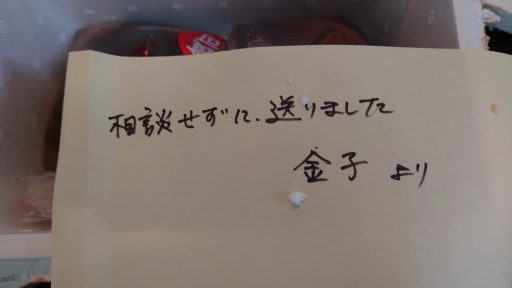 相談せずに、送りました
金子 より